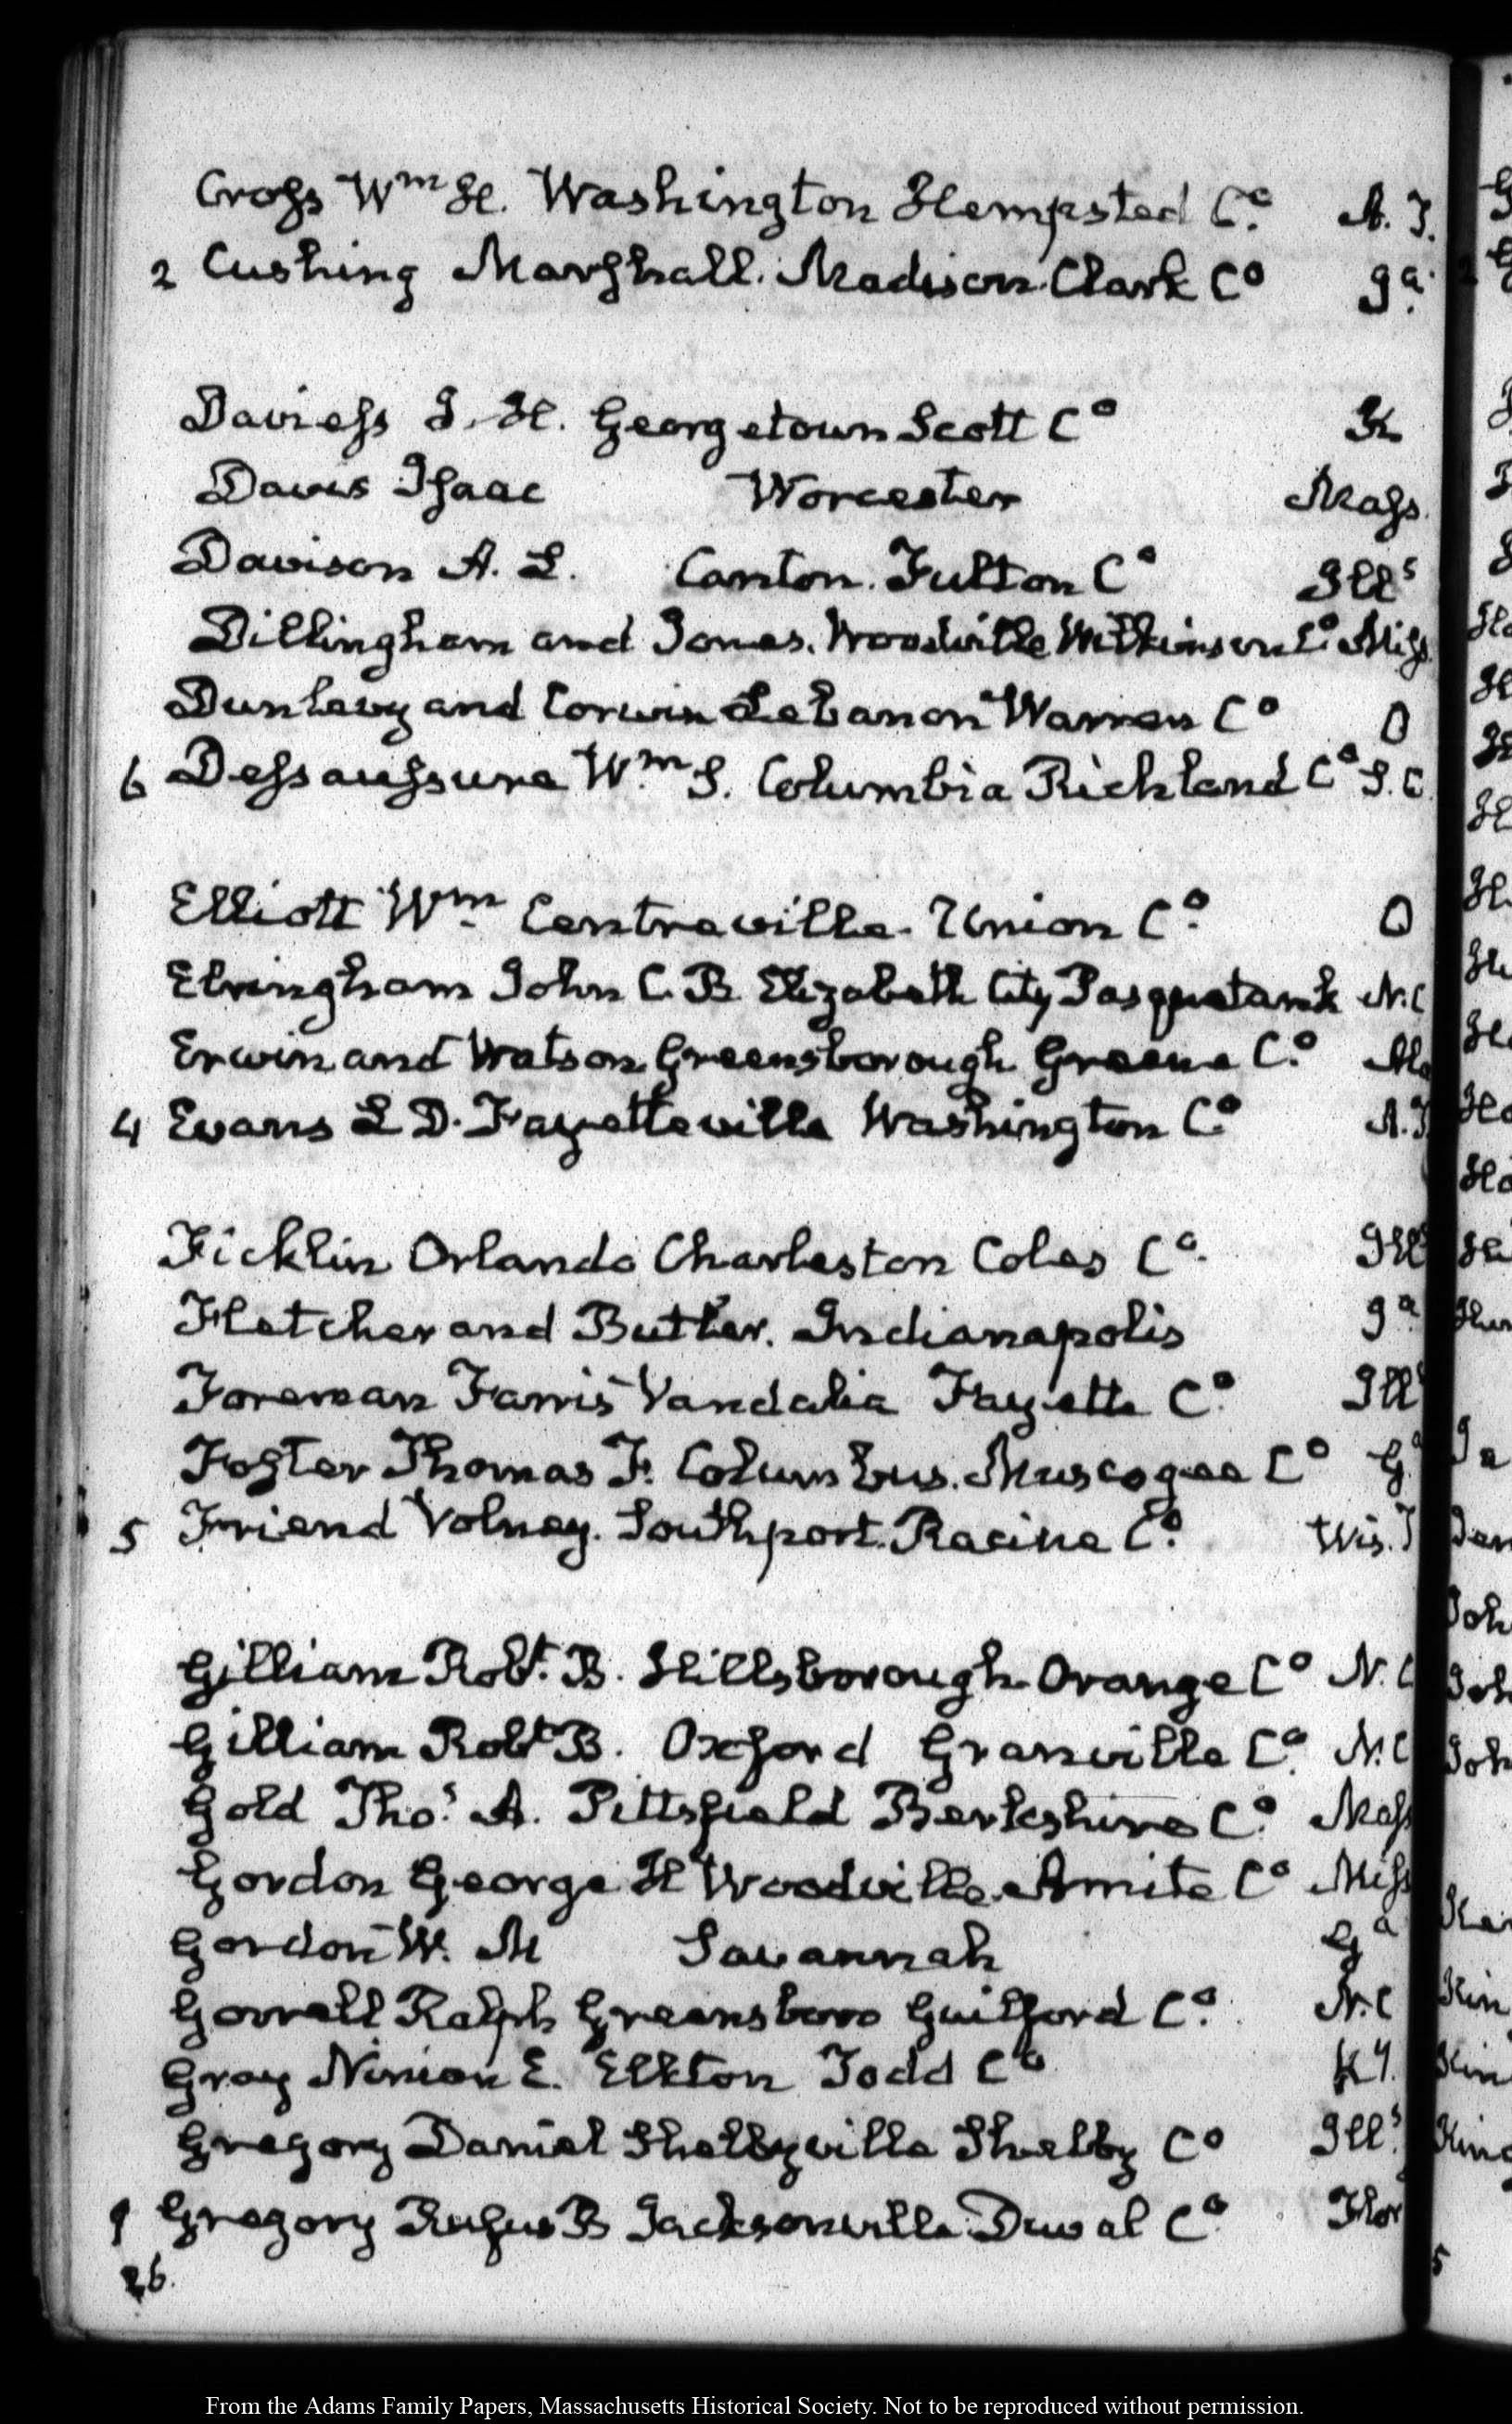 Cross Wm. H. Washington Hempsted Co. A. T.
2 Cushing Marshall. Madison. Clark Co Ia.
Daviess S. H. Georgetown Scott Co K
Davis Isaac Worcester Mass.
Davison A. L. Canton. Fulton Co Ills
Dillingham and Jones. Woodville Wilkinson Co. Miss.
Dunlevy and Corwin Lebanon Warren Co O
6 Dessaussure Wm. S. Columbia Richland Co S. C.
Elliott Wm. Centreville. Union Co. O
Elringham John C. B. Elizabeth City Pasquotank N. C
Erwin and Watson. Greensborough Greene Co. Ala
4 Evans L D. Fayetteville Washington Co. A. T
Ficklin Orlando Charleston Coles Co. Ill
Fletcher and Butler. Indianapolis Ia.
Foreman Farris Vandalia Fayette Co. Ills
Foster Thomas F. Columbus. Muscogee Co Ga
5 Friend Volney. Southport. Racine Co. Wis. T
Gilliam Robt. B. Hillsborough. Orange Co N. C
Gilliam Robt B. Oxford Granville Co. N. C
Gold Thos. A. Pittsfield Berkshire Co. Mass
Gordon George H Woodville. Amite Co Miss
Gordon W. M Savannah Ga
Gorrell Ralph Greensboro Guilford Co. N. C
Gray Ninion E. Elkton Todd Co Ky.
Gregory Daniel Shelbyville Shelby Co Ills.
9 Gregory Rufus B Jacksonville. Duval Co. Flor
26.
From the Adams Family Papers, Massachusetts Historical Society. Not to be reproduced without permission.